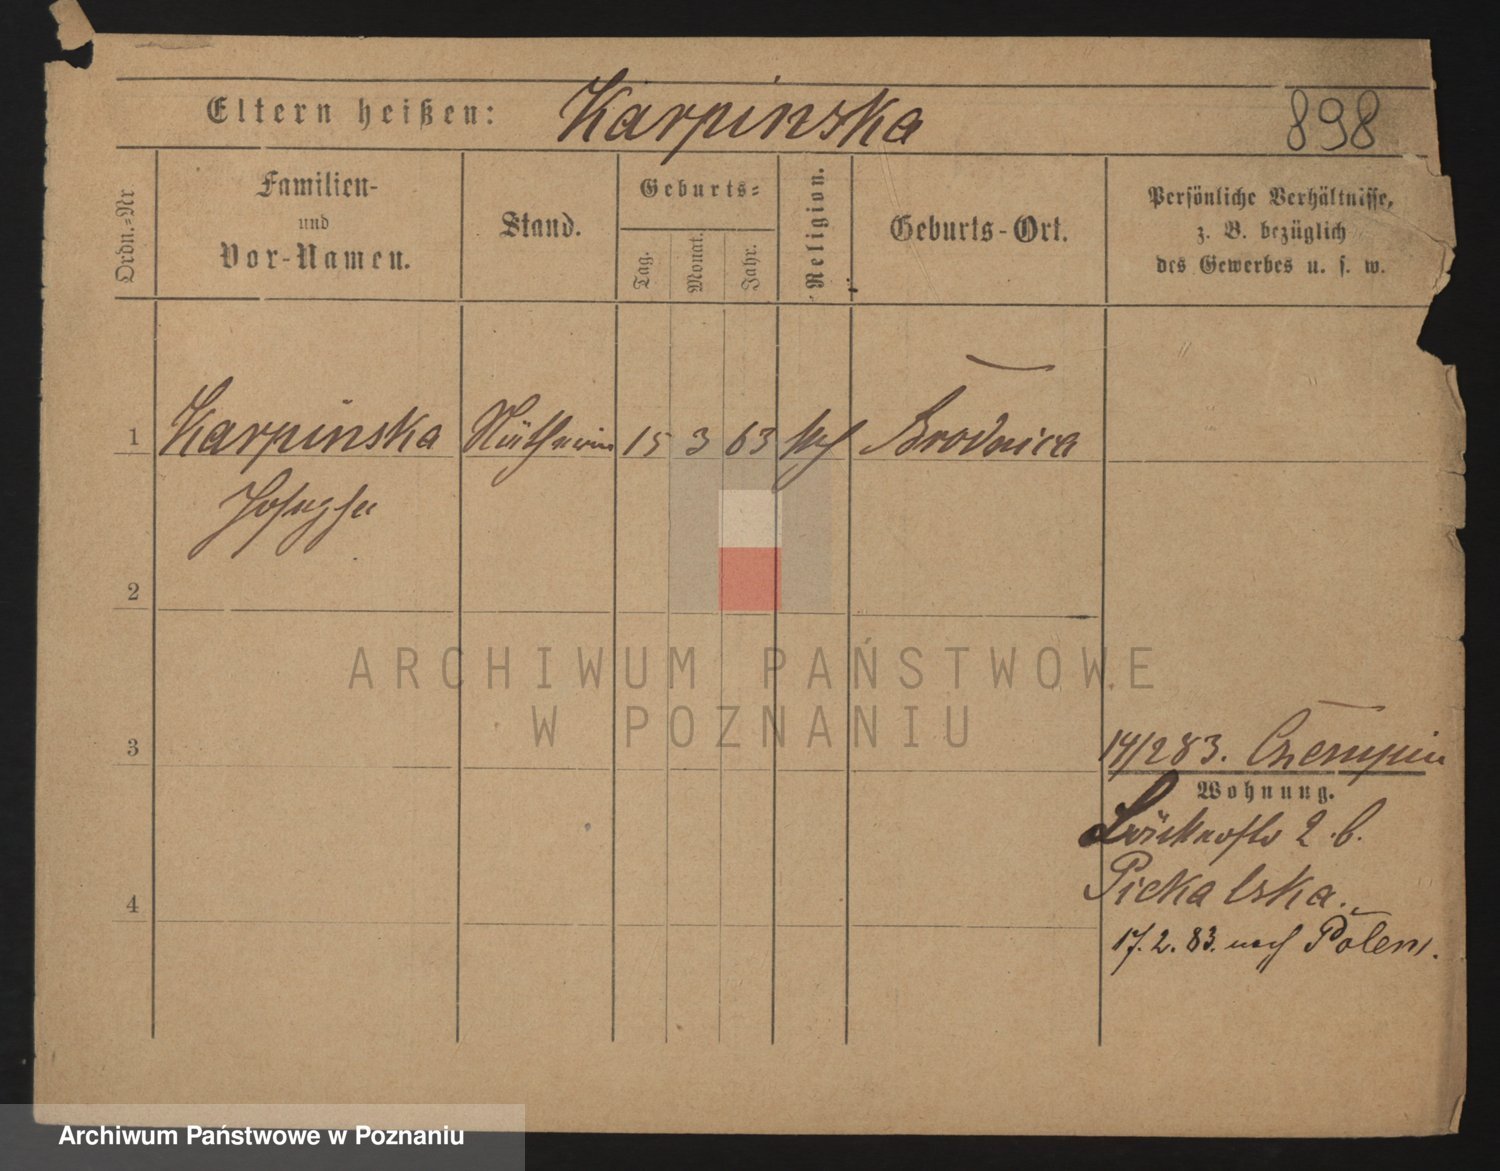 Eltern heißen: Karpinska 898
Ordn.=Nr
Familien-
und
Vor-Namen.
Stand.
Geburts=
Tag.
Monat.
Jahr.
Religion.
Geburts-Ort.
Persönliche Verhältnisse,
z. B. bezüglich
des Gewerbes u. s. w.
1 Karpinska Nätherin 15 3 63 kth Brodnica
Josepha
2
ARCHIWUM PAŃSTWOWE
W POZNANIU
3
14/2 83. Czempin
Wohnung.
2 b.
Piekalska.
4
17. 2. 83. nach Polen.
Archiwum Państwowe w Poznaniu